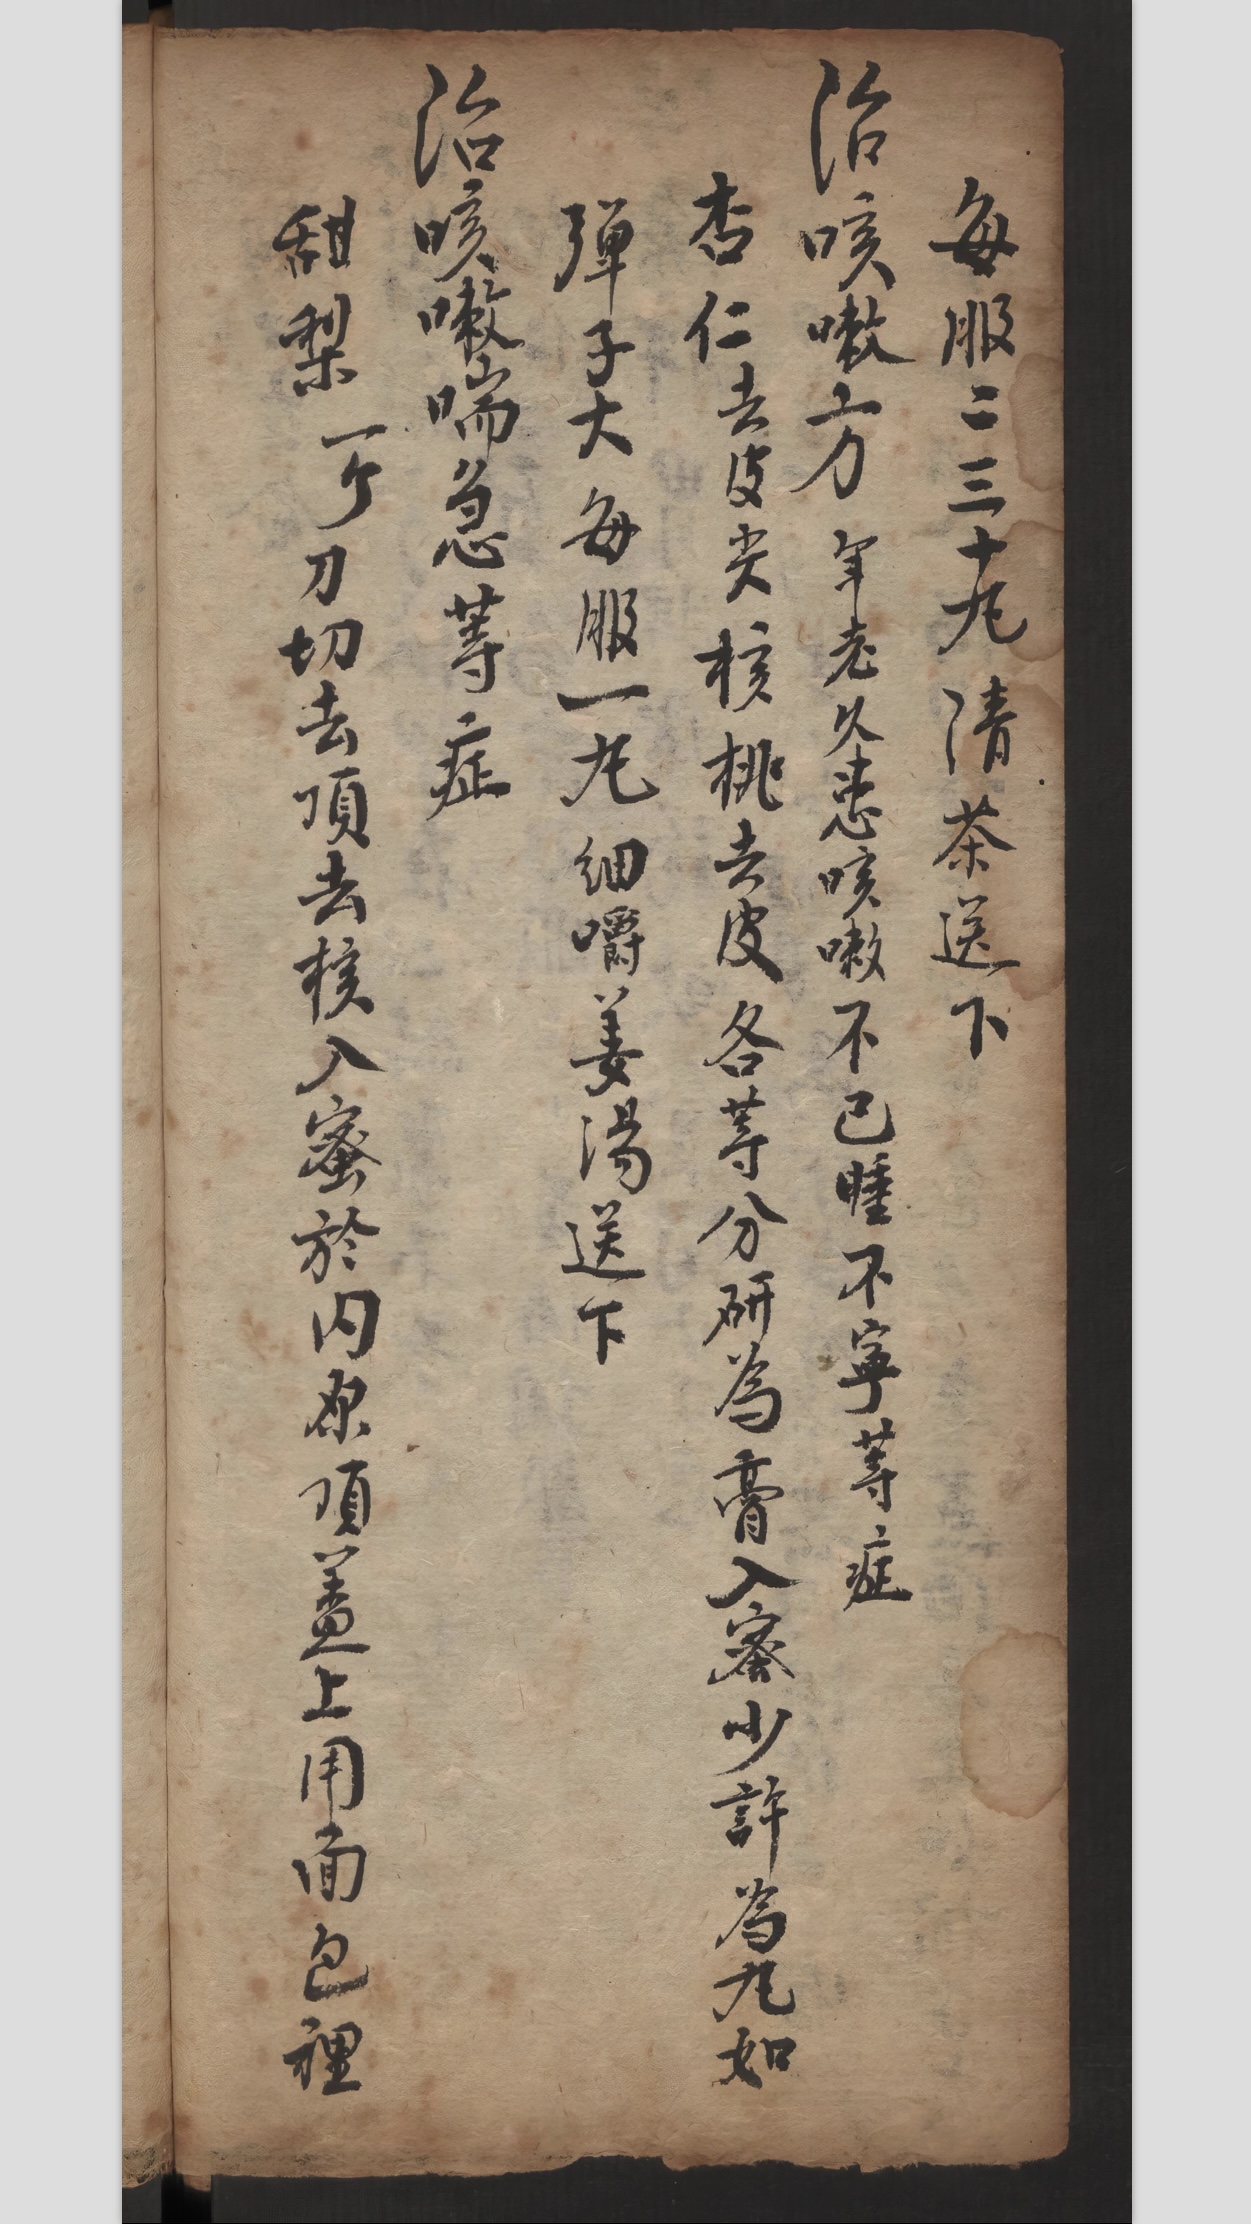 每服二三十丸清茶送下
治咳嗽方年老久患咳嗽不已睡不寧等症
杏仁去皮尖核桃去皮各等分研為膏入蜜少許為丸如
彈子大每服一丸細嚼姜湯送下
治咳嗽喘急等症
甜梨一个刀切去頂去核入蜜於内原頂盖上用面包裡